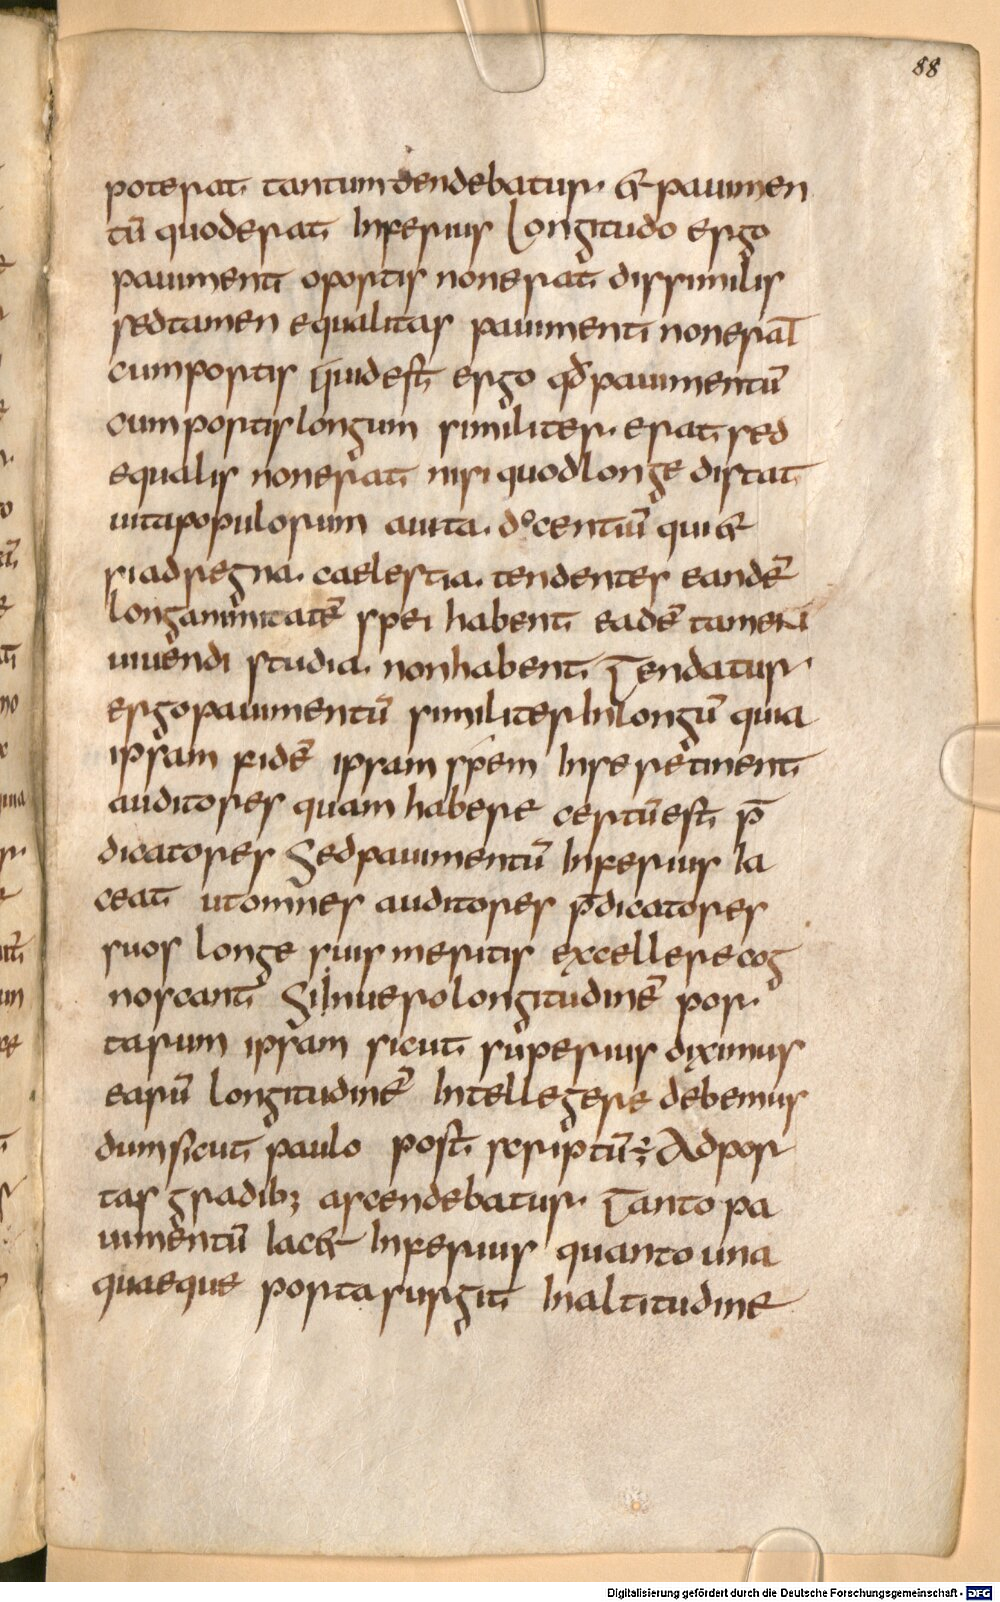 88
poterat tantum tendebatur & pauimen
tū quoderat Inferius Longitudo ergo
pauimenti oportis nonerat dissimilis
sedtamen equalitas pauimenti nonerat
cumportis quidest ergo qđ pauimentū
cumportis longum similiter erat sed
equalis nonerat nisi quodlonge distat
uitapopulorum auita docentiū qui &
siadregna caelestia tendentes eandē
longanimitatē spei habent eadē tamen
uiuendi studia nonhabent Tendatur
ergopauimentū similiter Inlongū quia
ipsam fidē ipsam spem Inse retinent
auditores quam habere certūest p̄
dicatores Sedpauimentū Inferius Ia
ceat utomnes auditores p̄dicatores
suos longe suis meritis excellere cog
noscant Si Inuerolongitudinē por
tarum ipsam sicut superius diximus
earū longitudinē Intellegere debemus
dumsicut paulo post scriptū ÷ Adpor
tas gradib; ascendebatur Tanto pa
uimentū Iac& Inferius quanto una
quaeque porta surgit Inaltitudine
Digitalisierung gefördert durch die Deutsche Forschungsgemeinschaft - DFG